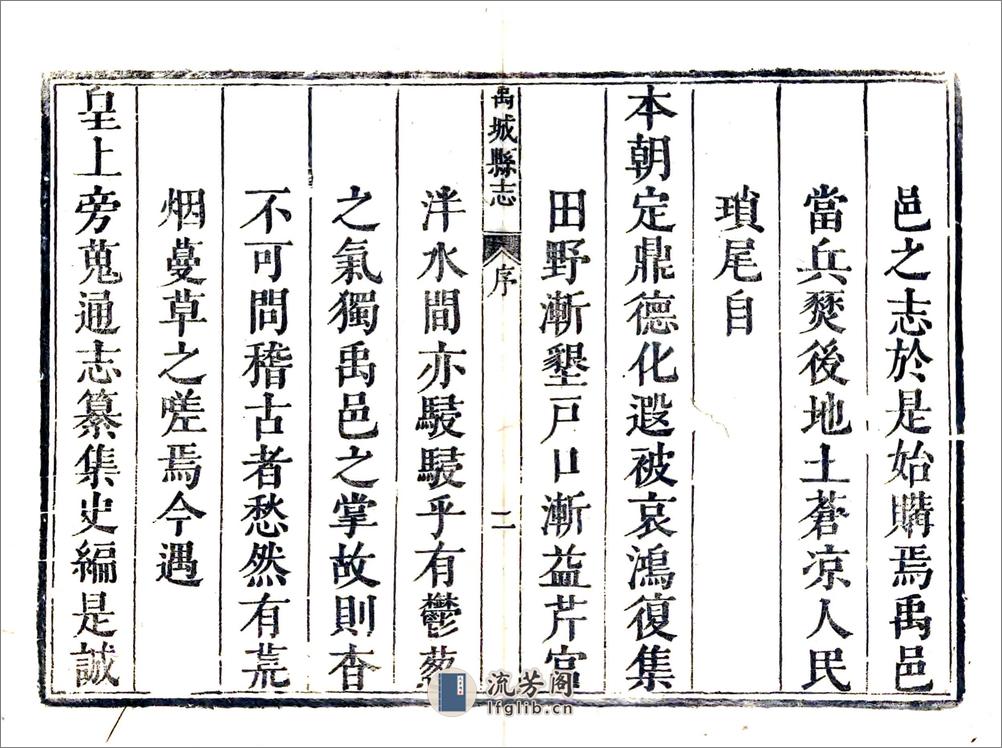 邑之志於是始購焉禹邑
當兵燹後地土蒼凉人民
瑣尾自
本朝定鼎德化遐被哀鴻復集
田野漸墾戸口漸益芹宮
禹城縣志
序
二
泮水間亦駸駸乎有鬱葱
之氣獨禹邑之掌故則杳
不可問稽古者愁然有荒
烟蔓草之嗟焉今遇
皇上旁蒐通志纂集史編是誠
流芳阁
lfglib.cn